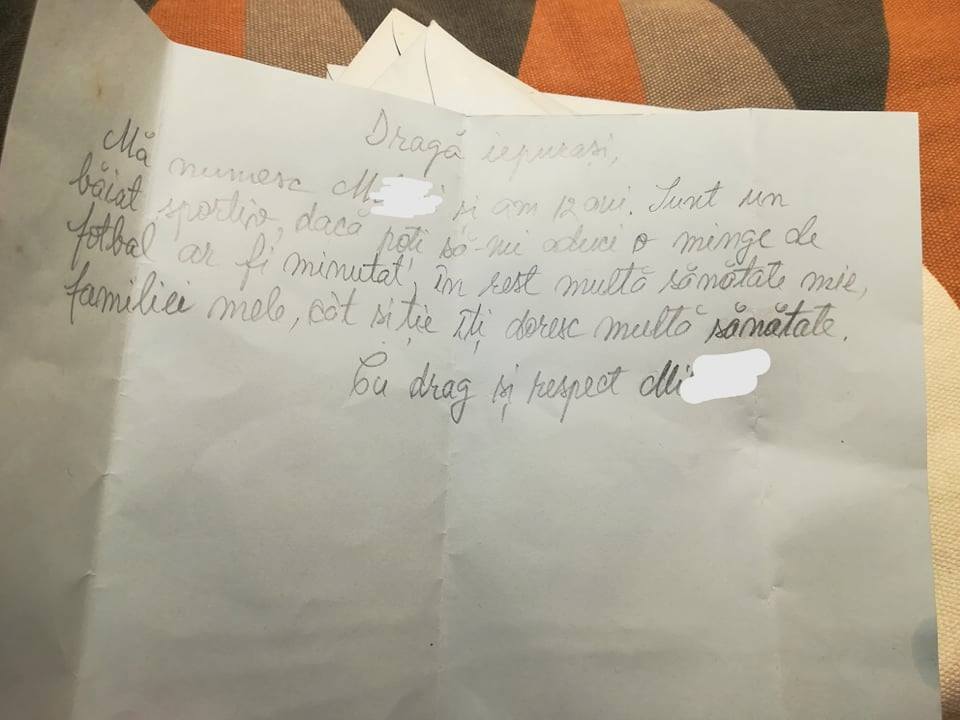 Dragă iepurași,
Mă numesc M și am 12 ani. Sunt un
băiat sportiv, dacă poți să-mi aduci o minge de
fotbal ar fi minutat, în rest multă sănătate mie,
familiei mele, cât și ție îți doresc multă sănătate.
Cu drag și respect Mi